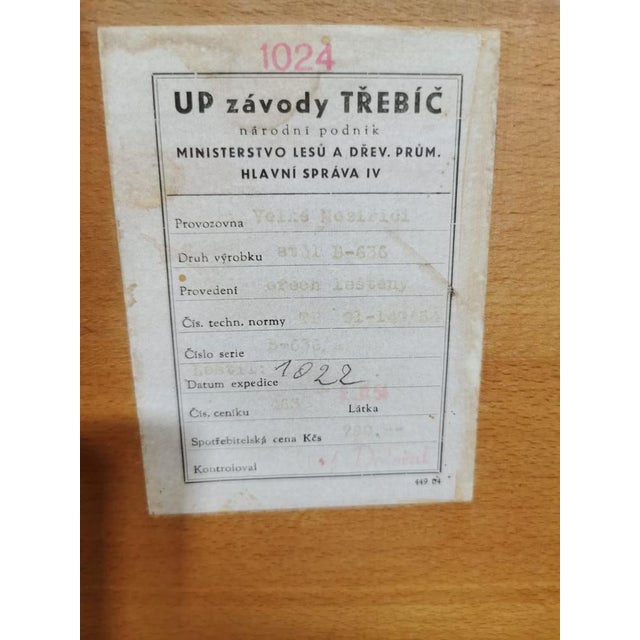 1024
UP závody TŘEBÍČ
národní podnik
MINISTERSTVO LESŮ A DŘEV. PRŮM.
HLAVNÍ SPRÁVA IV
Provozovna Velké Meziříčí
Druh výrobku stůl B-636
Provedení ořech leštěný
Čís. techn. normy
Číslo serie B-636/
Leštil: 1022
Datum expedice
Čís. ceníku Látka
Spotřebitelská cena Kčs
Kontroloval
449 04